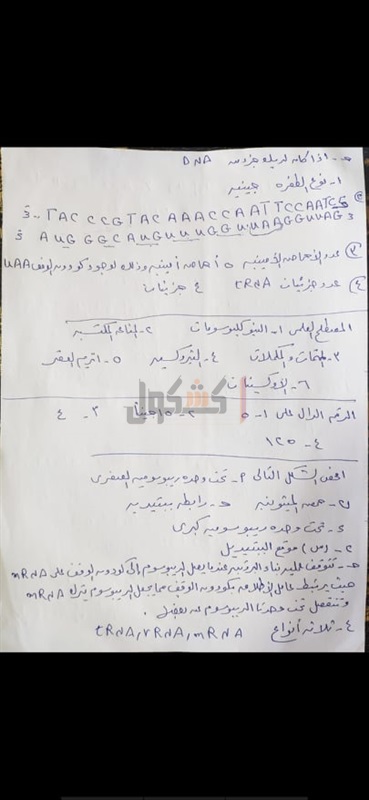 هـ - اذا كان لديك جزيء DNA
١- نوع الطفرة جينية
② 3 .. TAC CCGTACAAACCAATTCCAATCG
5 AUGGGCAUGUUUGGUUAAGGUUAG 3
③ عدد الأحماض الأمينية ٥ أحماض أمينية وذلك لوجود كودون الوقف UAA
④ عدد جزيئات tRNA ٤ جزيئات
المصطلح العلمي ١- النيوكليوسومات ٢- المناعة المكتسبة
٣- المتممات والمكملات ٤- الثيروكسين ٥- التريم العقر
٦- الأوكسينات
كشكول
الرقم الدال على ١- ٥ ٢- ١٥ جيناً ٣- ٤
٤- ١٢٥
افحص الشكل التالي ٢- تحت وحدة ريبوسومية الصغرى
ب- حمض الميثونين د- رابطة ببتيدية
تحت وحدة ريبوسومية كبرى
٢- (س) موقع الببتيديل
هـ- تتوقف عملية بناء البروتين عندما يصل الريبوسوم إلى كودون الوقف على mRNA
حيث يرتبط عامل الإطلاق بكودون الوقف مما يجعل الريبوسوم يترك mRNA
وتنفصل تحت وحدتا الريبوسوم عن بعضهما.
٤- ثلاثة أنواع tRNA, rRNA, mRNA